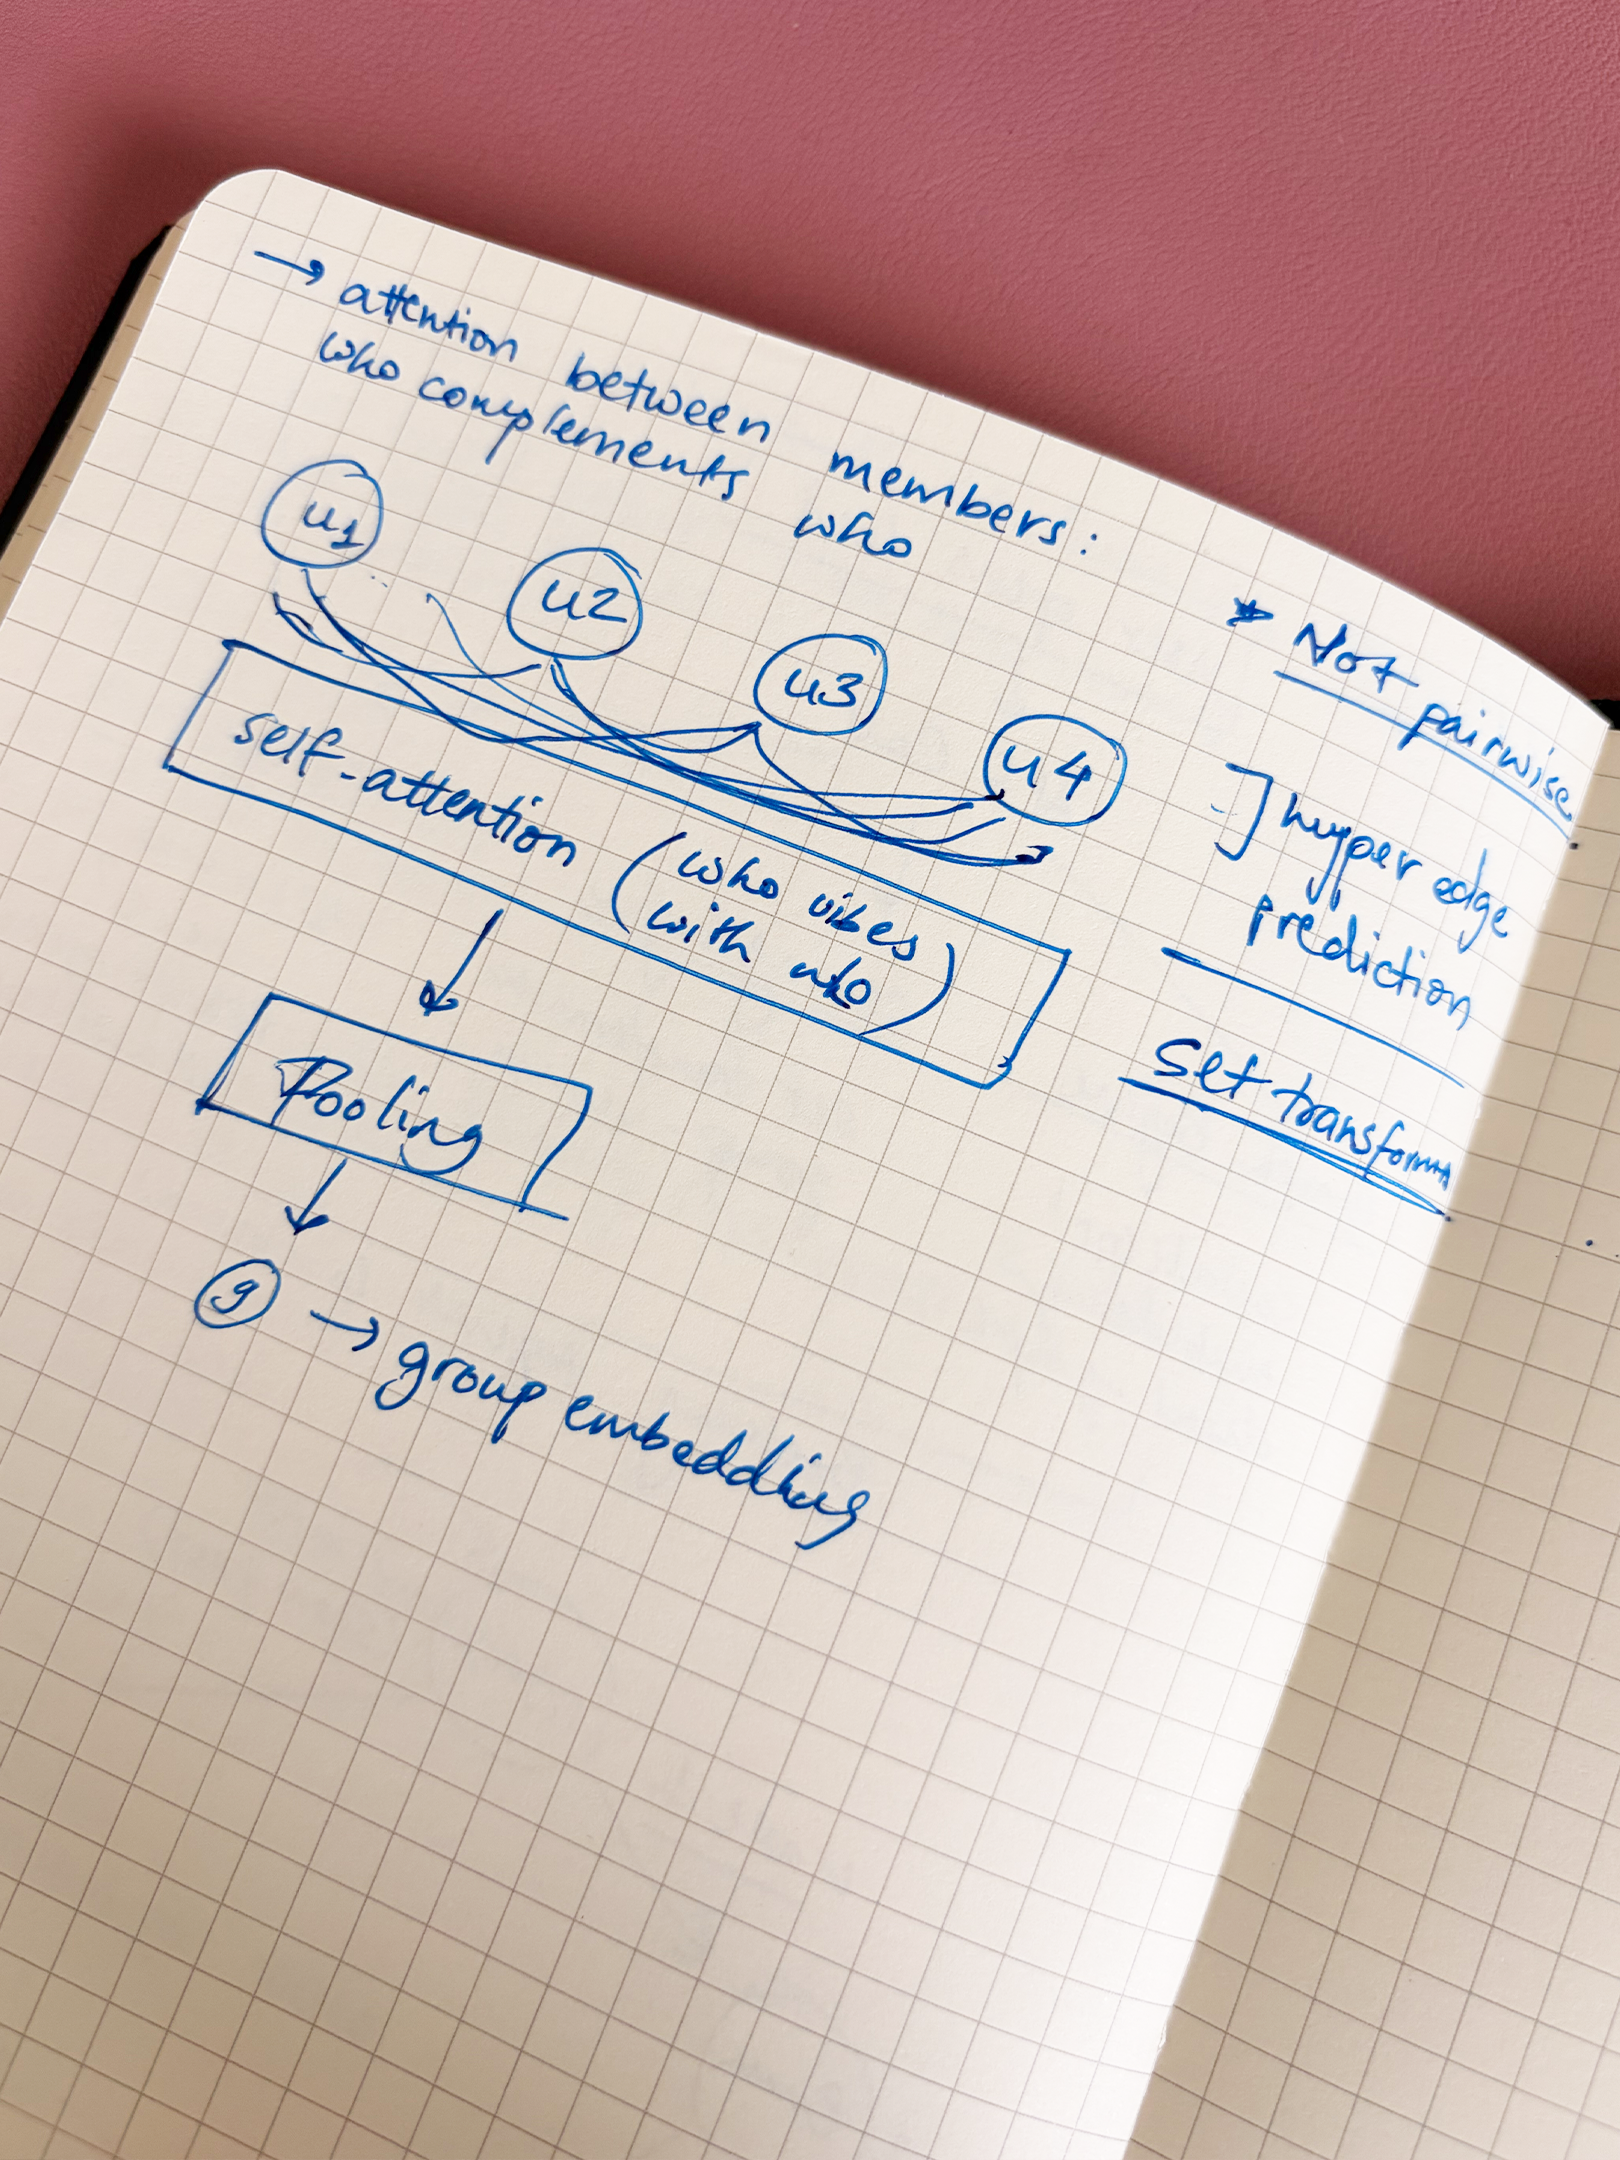 → attention between members:
who complements who
u1
u2
u3
u4
self-attention (who vibes
with who)
Pooling
g → group embedding
* Not pairwise
] hyper edge
prediction
Set transform